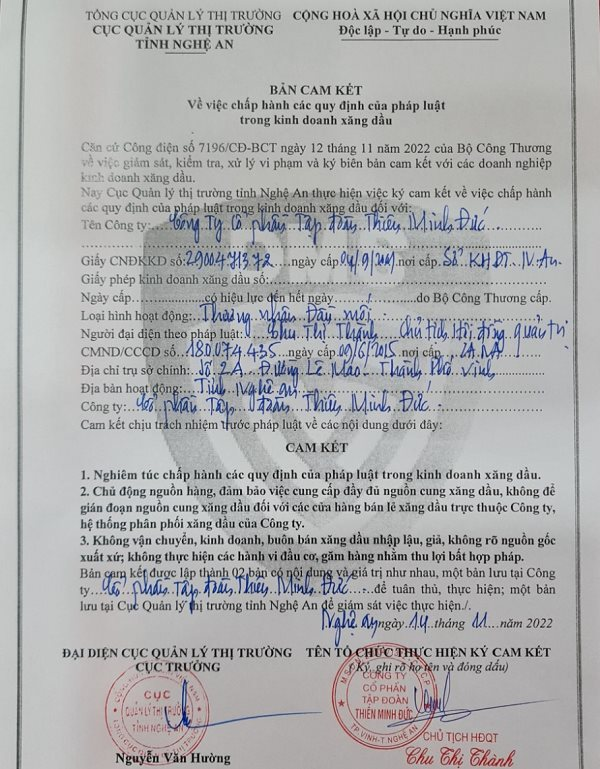 TỔNG CỤC QUẢN LÝ THỊ TRƯỜNG
CỤC QUẢN LÝ THỊ TRƯỜNG
TỈNH NGHỆ AN
CỘNG HOÀ XÃ HỘI CHỦ NGHĨA VIỆT NAM
Độc lập - Tự do - Hạnh phúc
BẢN CAM KẾT
Về việc chấp hành các quy định của pháp luật
trong kinh doanh xăng dầu
Căn cứ Công điện số 7196/CĐ-BCT ngày 12 tháng 11 năm 2022 của Bộ Công Thương
về việc giám sát, kiểm tra, xử lý vi phạm và ký biên bản cam kết với các doanh nghiệp
kinh doanh xăng dầu.
Nay Cục Quản lý thị trường tỉnh Nghệ An thực hiện việc ký cam kết về việc chấp hành
các quy định của pháp luật trong kinh doanh xăng dầu đối với:
Tên Công ty: Công Ty Cổ phần Tập đoàn Thiên Minh Đức
Giấy CNĐKKD số: 2900471372 ngày cấp 04/9/2001 nơi cấp Sở KHĐT N.An
Giấy phép kinh doanh xăng dầu số:
Ngày cấp......................có hiệu lực đến hết ngày......................do Bộ Công Thương cấp.
Loại hình hoạt động: Thương nhân Đầu mối
Người đại diện theo pháp luật: Chu Thị Thành Chủ tịch Hội đồng quản trị
CMND/CCCD số 180.074.435 ngày cấp 09/6/2015 nơi cấp CA NA
Địa chỉ trụ sở chính: Số 2A Đường Lê Mao Thành Phố Vinh
Địa bàn hoạt động: Tỉnh Nghệ an
Công ty: Cổ phần Tập đoàn Thiên Minh Đức
Cam kết chịu trách nhiệm trước pháp luật về các nội dung dưới đây:
CAM KẾT
1. Nghiêm túc chấp hành các quy định của pháp luật trong kinh doanh xăng dầu.
2. Chủ động nguồn hàng, đảm bảo việc cung cấp đầy đủ nguồn cung xăng dầu, không để
gián đoạn nguồn cung xăng dầu đối với các cửa hàng bán lẻ xăng dầu trực thuộc Công ty,
hệ thống phân phối xăng dầu của Công ty.
3. Không vận chuyển, kinh doanh, buôn bán xăng dầu nhập lậu, giả, không rõ nguồn gốc
xuất xứ; không thực hiện các hành vi đầu cơ, găm hàng nhằm thu lợi bất hợp pháp.
Bản cam kết được lập thành 02 bản có nội dung và giá trị như nhau, một bản lưu tại Công
ty Cổ phần Tập đoàn Thiên Minh Đức để tuân thủ, thực hiện; một bản
lưu tại Cục Quản lý thị trường tỉnh Nghệ An để giám sát việc thực hiện./.
Nghệ an ngày 14 tháng 11 năm 2022
ĐẠI DIỆN CỤC QUẢN LÝ THỊ TRƯỜNG
CỤC TRƯỞNG
TÊN TỔ CHỨC THỰC HIỆN KÝ CAM KẾT
( Ký, ghi rõ họ tên và đóng dấu)
CỤC
QUẢN LÝ THỊ TRƯỜNG
TỈNH NGHỆ AN
CÔNG TY
CỔ PHẦN
TẬP ĐOÀN
THIÊN MINH ĐỨC
TP.VINH-T.NGHỆ AN
Nguyễn Văn Hường
CHỦ TỊCH HĐQT
Chu Thị Thành